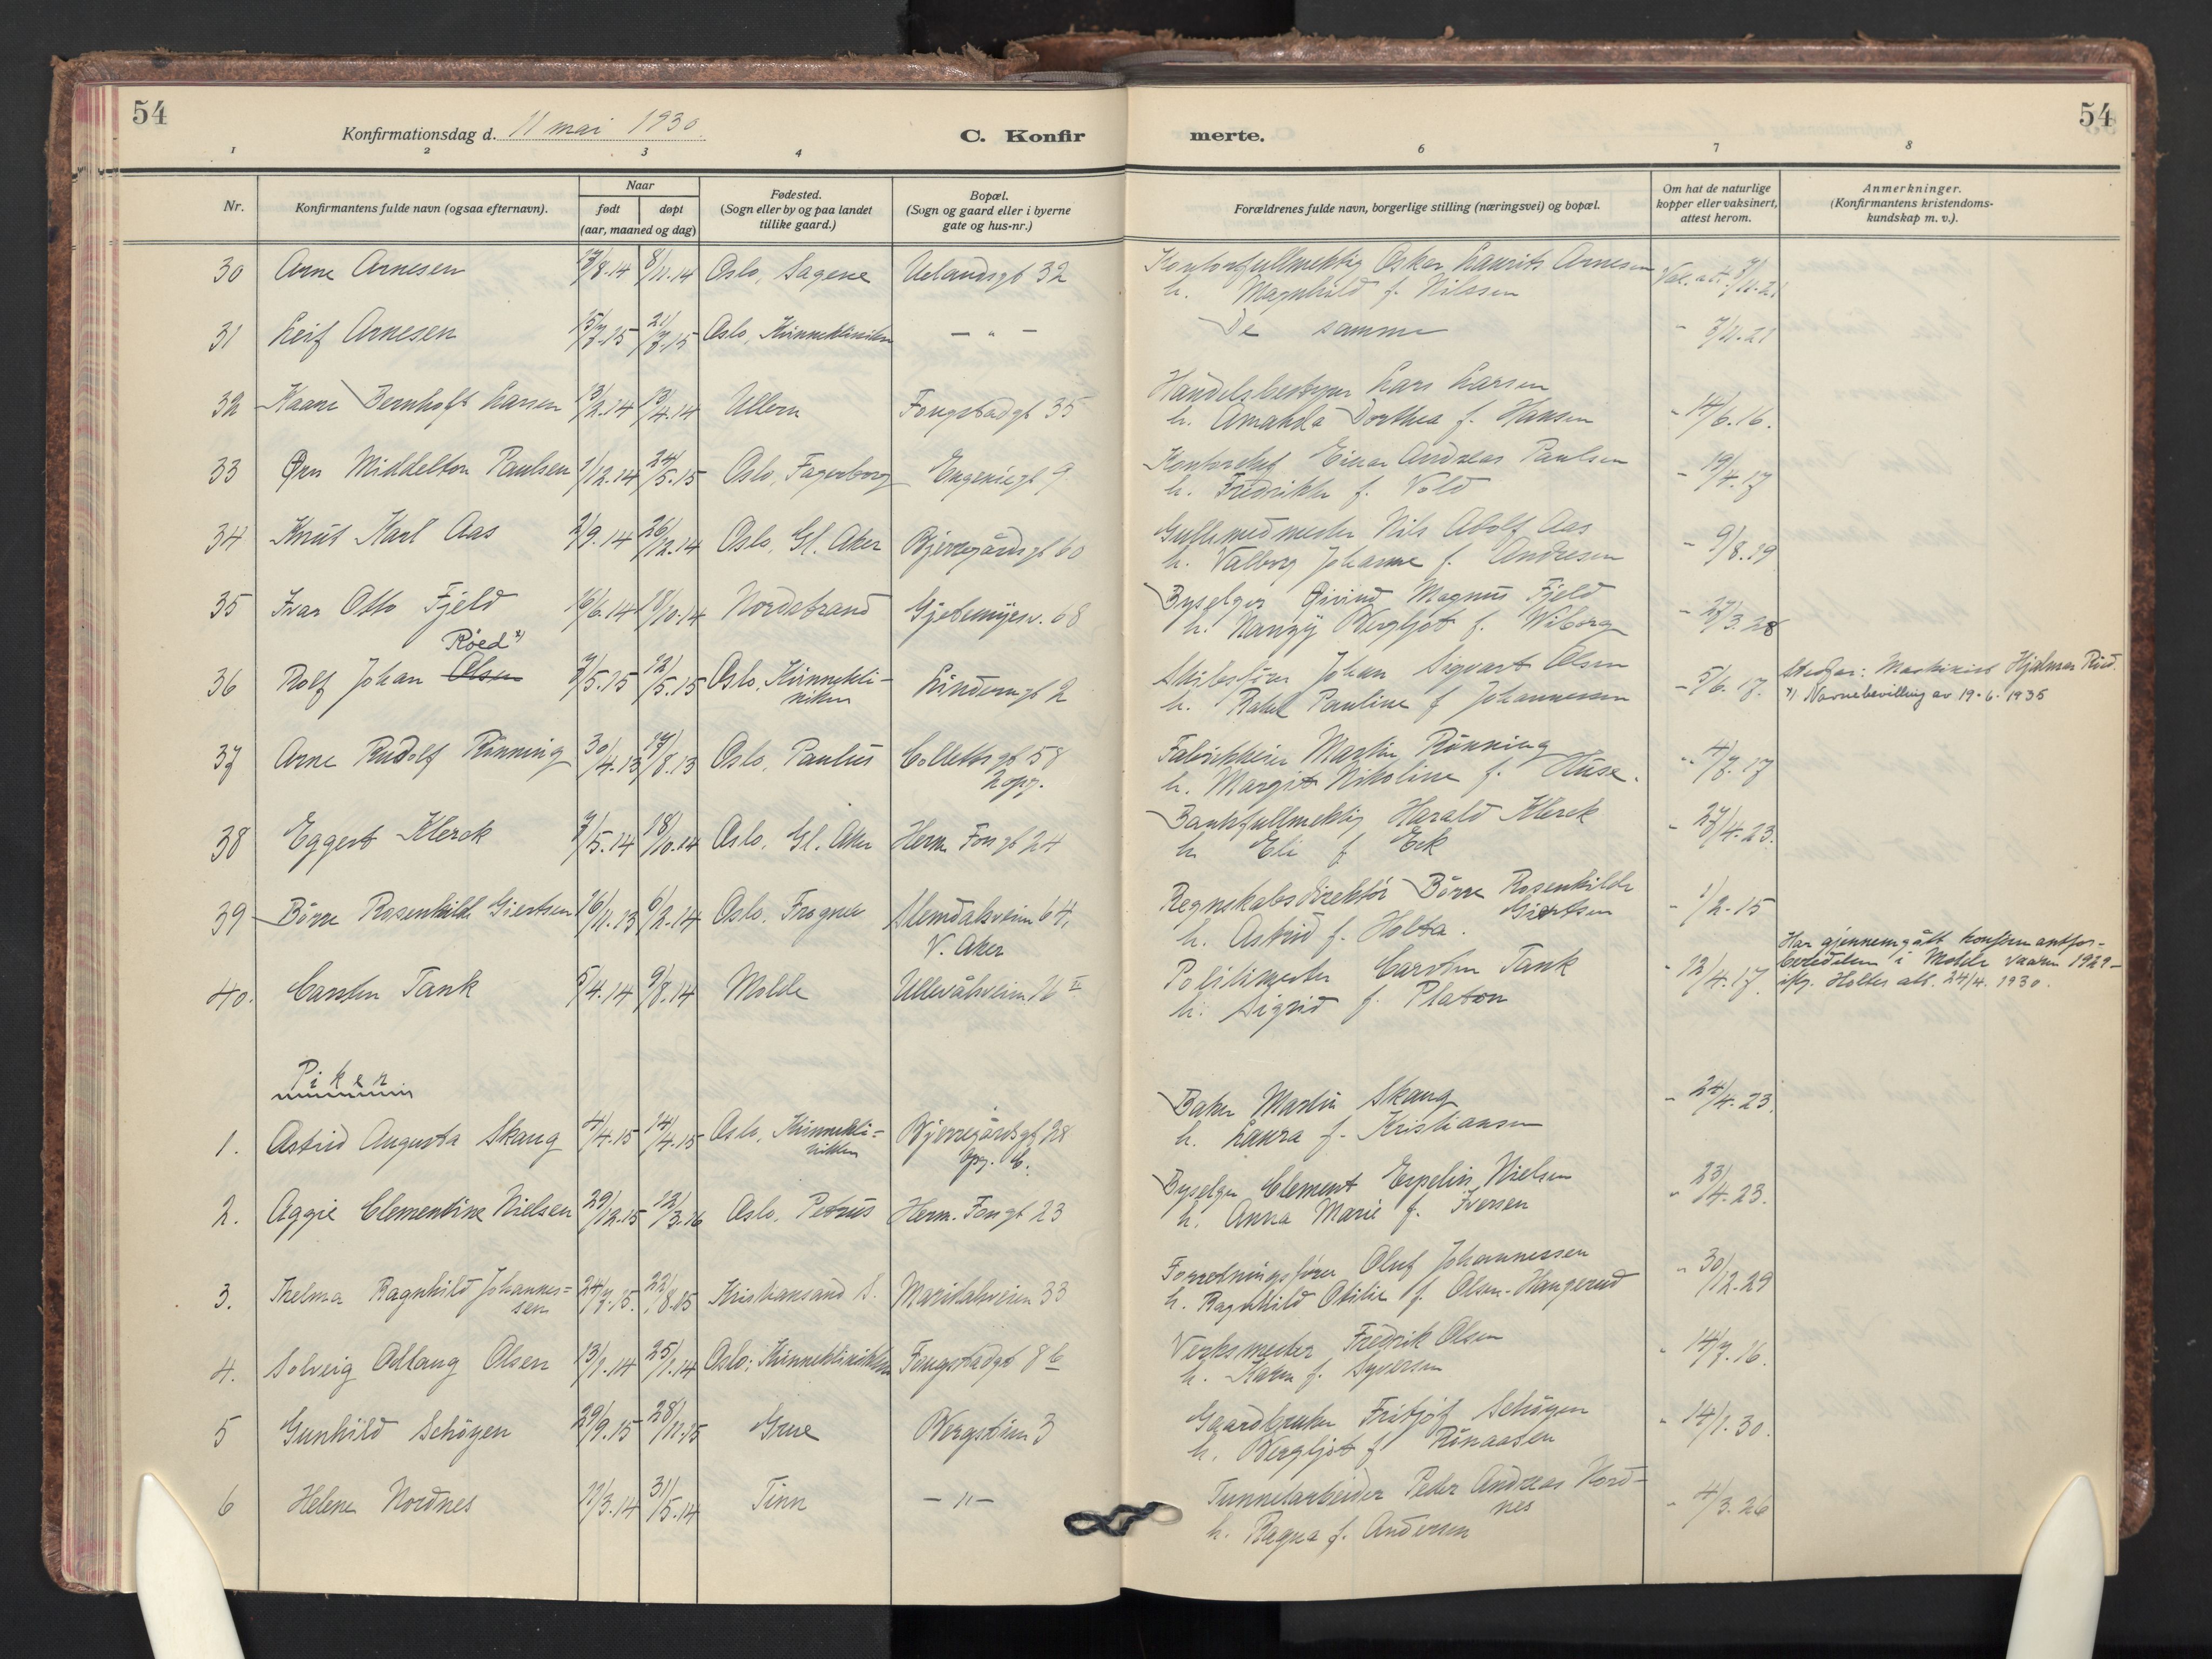 54
Konfirmationsdag d. 11 mai 1930.
C. Konfir
merte.
54
1 2 3 4 6 7 8
Nr.
Konfirmantens fulde navn (ogsaa efternavn).
Naar
født døpt
(aar, maaned og dag)
Fødested.
(Sogn eller by og paa landet
tillike gaard.)
Bopæl.
(Sogn og gaard eller i byerne
gate og hus-nr.)
Forældrenes fulde navn, borgerlige stilling (næringsvei) og bopæl.
Om hat de naturlige
kopper eller vaksinert,
attest herom.
Anmerkninger.
(Konfirmantens kristendoms-
kundskap m. v.).
30 Arne Arnesen 17/8.14 8/11.14 Oslo, Sagene Uelandsgt 32 Kontorfullmektig Oskar Laurits Arnesen Vak. att. 3/11.21
h. Magnhild f. Nilssen
31 Leif Arnesen 15/7.15 21/7.15 Oslo, Kvinneklinikken — " — De samme - 3/11.21
32 Kaare Bernhoft Larsen 13/2.14 13/4.14 Ullern Fougstadgt 35 Handelsbestyrer Lars Larsen
h. Amanda Dorthea f. Hansen - 14/6.16.
33 Ørn Middelton Paulsen 1/12.14 24/5.15 Oslo, Fagerborg Eugeniegt 9 Kontorchef Einar Andreas Paulsen - 19/4.17
h. Fredrikke f. Vold
34 Knut Karl Aas 2/9.14 26/12.14 Oslo, Gl. Aker Bjerregårdsgt 60 Gullsmedmester Nils Adolf Aas
h. Valborg Johanne f. Andresen - 9/8.19
35 Ivar Otto Fjeld 16/6.14 18/10.14 Nordstrand Gjetemyrsv. 68 Byselger Øivind Magnus Fjeld
h. Nanzy Bergljot f. Wiborg - 27/3.28
Röed x)
36 Rolf Johan Olsen 7/5.15 12/5.15 Oslo, Kvinnekli-
nikken Lindemgt 2 Skibsfører Johan Sigvart Olsen - 5/6.17. Stedfar: Maskinist Hjalmar Röed.
h. Rakel Pauline f Johannessen x) Navnebevilling av 19-6-1935
37 Arne Rudolf Rönning 30/4.13 17/8.13 Oslo, Paulus Colletts gt 58
2 opg. Fabrikkeier Martin Rönning
h. Margit Nikoline f. Huse. - 4/7.17
38 Eggert Klerck 7/5.14 18/10.14 Oslo, Gl. Aker Herm. Fossgt 24 Bankfullmektig Harald Klerck
h. Eli f Eck - 27/4.23.
39 Börre Rosenkilde Giertsen 16/11.13 6/2.14 Oslo, Frogner Slemdalsveien 64,
V. Aker Regnskabsdirektör Börre Rosenkilde
Giertsen
h. Astrid f. Holta. - 1/2-15
40. Carsten Tank 5/4.14 9/8.14 Molde Ullevålsveien 76 II Politimester Carsten Tank
h. Sigrid f. Platon - 12/4.17. Har gjennemgått konfirmantfor-
beredelsen i Molde vaaren 1929 -
ifg. Holtes att. 24/4. 1930.
Piker
1. Astrid Augusta Skaug 4/4.15 14/4.15 Oslo, Kvinnekli=
nikken Bjerregårdsgt 28
opg. C. Baker Martin Skaug - 24/4.23.
h. Laura f. Kristiansen
2. Aggie Clementine Nielsen 29/12.15 12/3.16 Oslo, Petrus Herm. Fossgt 23 Byselger Clement Espelin Nielsen - 23/4.23.
h. Anna Marie f. Iversen
3. Thelma Ragnhild Johannes=
sen 24/7.15. 22/8.15 Kristiansand S. Maridalsveien 33 Forretningsfører Oluf Johannessen
h. Ragnhild Otilie f. Olsen-Haugerud - 30/12.29
4. Solveig Odlaug Olsen 13/1.14 25/1.14 Oslo, Kvinneklinikken Fougstadgt 8 b Verksmester Fredrik Olsen
h. Karen f. Syversen - 14/7.16.
5 Gunhild Schöyen 29/9.15 28/11.15 Grue Bergstien 3 Gaardbruker Fritjof Schöyen
h. Bergljot f. Rönaasen - 14/1.30.
6 Helene Nordnes 17/3.14 31/5.14 Tinn — " — Tunnelarbeider Peder Andreas Nord-
nes
h. Ragna f. Andersen - 4/3.26